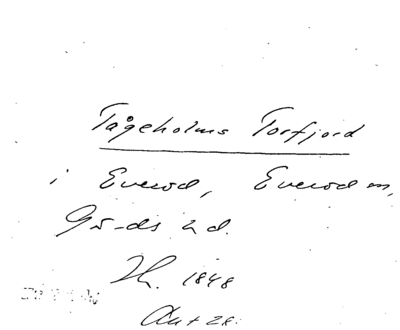 Tågeholms Torfjord
i Everöd, Everöd sn,
Gärds hd.
Jh. 1848
Akt 28.